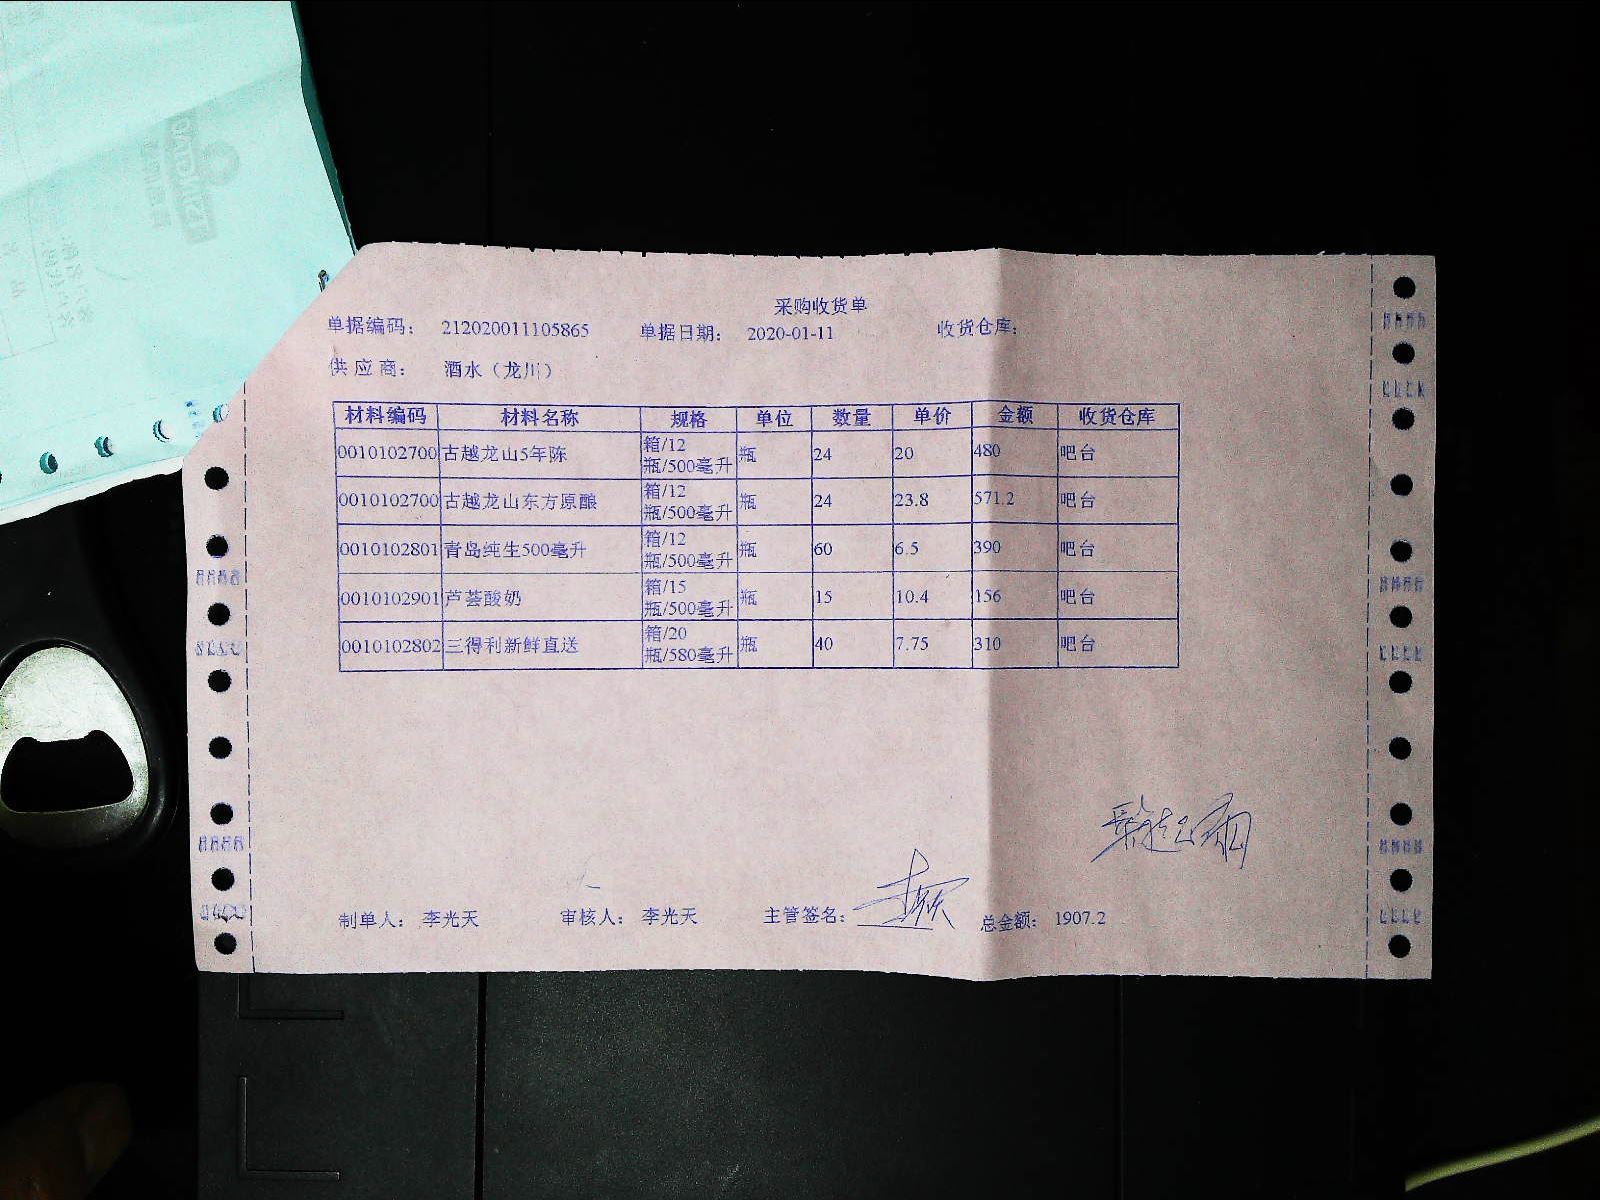 采购收货单
单据编码： 212020011105865 单据日期： 2020-01-11 收货仓库：
供 应 商： 酒水（龙川）
材料编码 材料名称 规格 单位 数量 单价 金额 收货仓库
0010102700 古越龙山5年陈 箱/12瓶/500毫升 瓶 24 20 480 吧台
0010102700 古越龙山东方原酿 箱/12瓶/500毫升 瓶 24 23.8 571.2 吧台
0010102801 青岛纯生500毫升 箱/12瓶/500毫升 瓶 60 6.5 390 吧台
0010102901 芦荟酸奶 箱/15瓶/500毫升 瓶 15 10.4 156 吧台
0010102802 三得利新鲜直送 箱/20瓶/580毫升 瓶 40 7.75 310 吧台
制单人： 李光天 审核人： 李光天 主管签名： 总金额： 1907.2